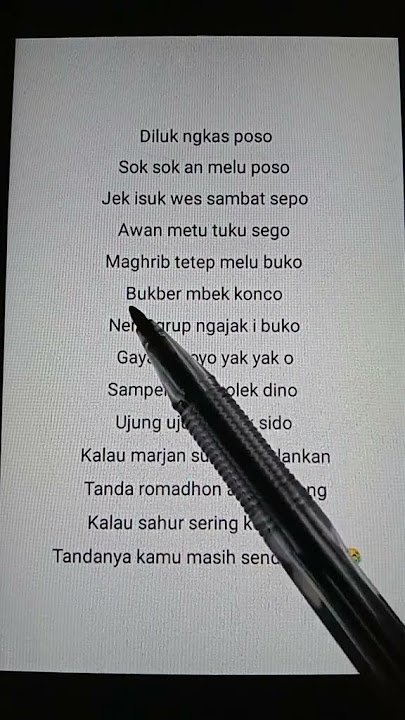 Diluk ngkas poso
Sok sok an melu poso
Jek isuk wes sambat sepo
Awan metu tuku sego
Maghrib tetep melu buko
Bukber mbek konco
ngajak i buko
yak yak o
dino
Ujung sido
Kalau marjan
Tanda romadhon
Kalau sahur sering
Tandanya kamu masih